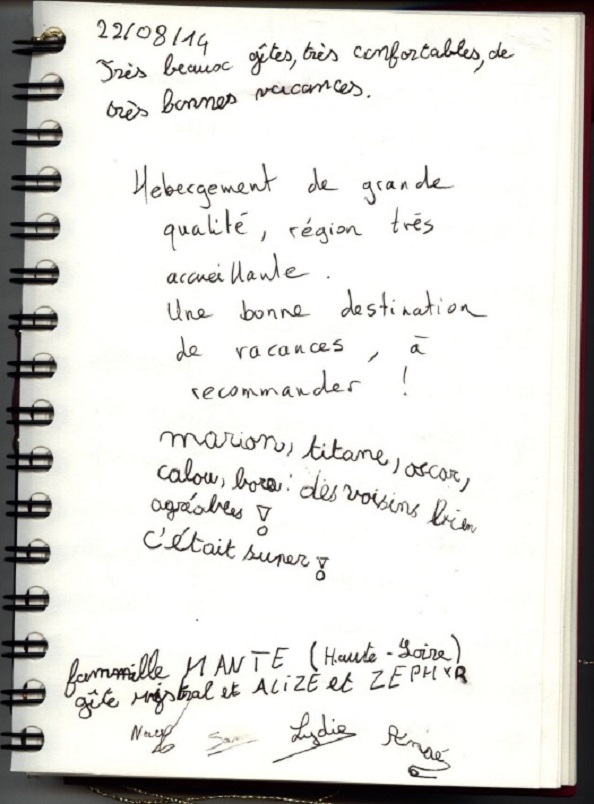 22/08/14
Très beaux gîtes, très confortables, de
très bonnes vacances.
Hebergement de grande
qualité, région très
accueillante.
Une bonne destination
de vacances, à
recommander !
marion, titane, oscar,
calou, bora : des voisins bien
agréables !
c'était super !
fammille MANTE (Haute-Loire)
gîte mistral et ALIZÉ et ZEPHYR
Lydie